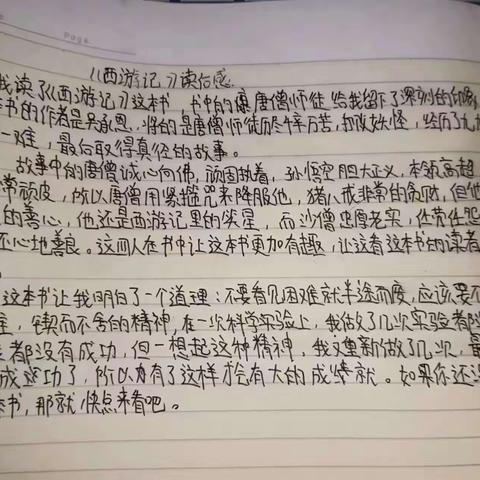 Page
《西游记》读后感
我读了《西游记》这本书,书中的唐僧师徒给我留下了深刻的印象
本书的作者是吴承恩,讲的是唐僧师徒历尽千辛万苦,打败妖怪,经历了九九
一难,最后取得真径的故事。
故事中的唐僧诚心向佛,顽固执着,孙悟空胆大正义,本领高超
常顽皮,所以唐僧用紧箍咒来降服他,猪八戒非常的贪财,但他
的善心,他还是西游记里的笑星,而沙僧忠厚老实,任劳任怨
还心地善良。这四人在书中让这本书更加有趣,让这看这本书的读者
这本书让我明白了一个道理:不要看见困难就半途而废,应该要不
锲而不舍的精神,在一次科学实验上,我做了几次实验都
都没有成功,但一想起这种精神,我又重新做了几次,最
成功了,所以有了这样才会有大的成绩就。如果你还没
本书,那就快点来看吧。